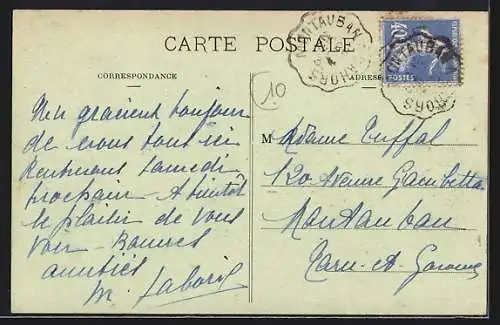 CARTE POSTALE
CORRESPONDANCE
ADRESSE
10
MONTAUBAN
CAHORS
MONTAUBAN
CAHORS
POSTES
toujours
de vous tous ici
Rentrerons samedi
prochain. A bientôt
le plaisir de vous
voir - Bonnes
amitiés
M. Laborie
Madame Tuffal
120 Avenue Gambetta
Montauban
Tarn-et-Garonne